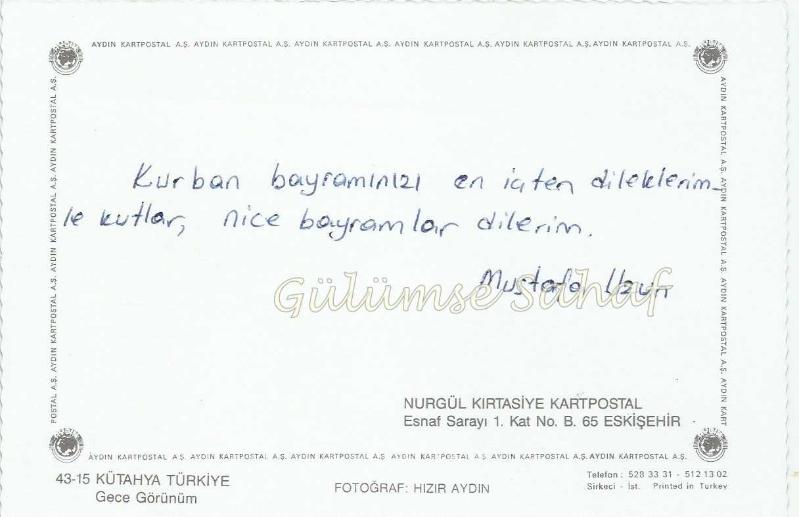 AYDIN KARTPOSTAL A.Ş. AYDIN KARTPOSTAL A.Ş. AYDIN KARTPOSTAL A.Ş. AYDIN KARTPOSTAL A.Ş. AYDIN KARTPOSTAL A.Ş. AYDIN KARTPOSTAL A.Ş.
POSTAL A.Ş. AYDIN KARTPOSTAL A.Ş. AYDIN KARTPOSTAL A.Ş. AYDIN KARTPOSTAL A.Ş.
Kurban bayramınızı en içten dileklerim-
le kutlar, nice bayramlar dilerim.
Mustafa Uzun
Gülümse Sahaf
AYDIN KARTPOSTAL A.Ş. AYDIN KARTPOSTAL A.Ş. AYDIN KARTPOSTAL A.Ş. AYDIN KART
NURGÜL KIRTASİYE KARTPOSTAL
Esnaf Sarayı 1. Kat No. B. 65 ESKİŞEHİR
AYDIN KARTPOSTAL A.Ş. AYDIN KARTPOSTAL A.Ş. AYDIN KARTPOSTAL A.Ş. AYDIN KARTPOSTAL A.Ş. AYDIN KARTPOSTAL A.Ş. AYDIN KARTPOSTAL A.Ş.
43-15 KÜTAHYA TÜRKİYE
Gece Görünüm
FOTOĞRAF: HIZIR AYDIN
Telefon: 528 33 31 - 512 13 02
Sirkeci - İst. Printed in Turkey